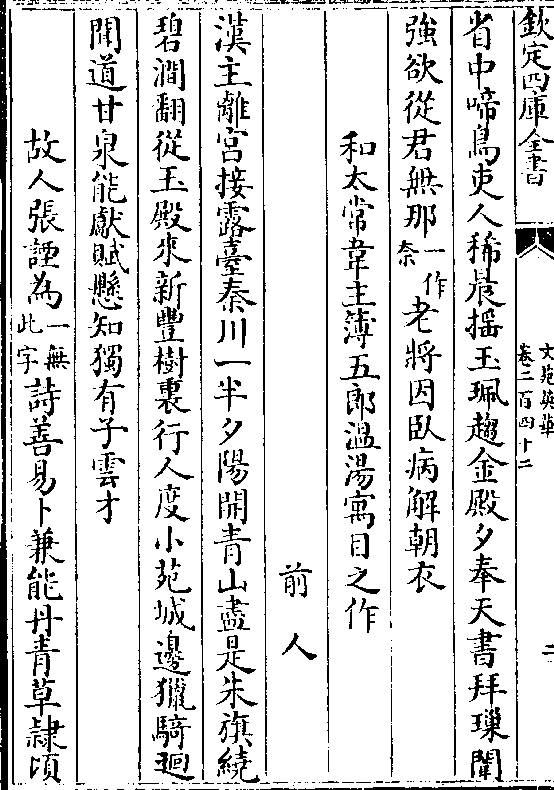 欽定四庫全書
文苑英華
卷二百四十二
二
省中啼鳥吏人稀晨搖玉珮趨金殿夕奉天書拜瑣闈
強欲從君無那一作奈老將因臥病解朝衣
和太常韋主簿五郎溫湯寓目之作
前人
漢主離宮接露臺秦川一半夕陽開青山盡是朱旗繞
碧澗翻從玉殿來新豐樹裏行人度小苑城邊獵騎廻
聞道甘泉能獻賦懸知獨有子雲才
故人張諲為一無此字詩善易卜兼能丹青草隷頃